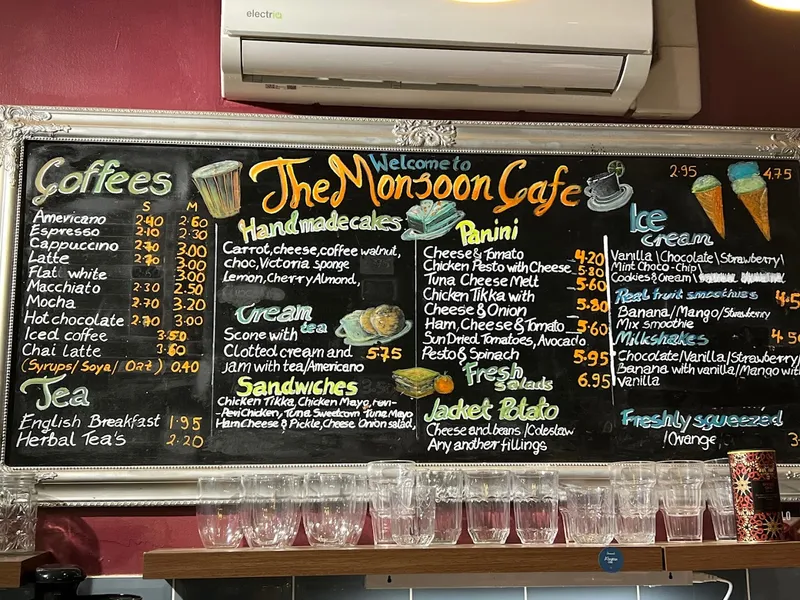 electriQ
Welcome to
The Monsoon Cafe
Coffees
S M
Americano 2.40 2.60
Espresso 2.10 2.30
Cappuccino 2.70 3.00
Latte 2.70 3.00
Flat white 3.00
Macchiato 2.30 2.50
Mocha 2.70 3.20
Hot chocolate 2.70 3.00
Iced coffee 3.50
Chai latte 3.60
(Syrups/Soya/Oat) 0.40
Tea
English Breakfast 1.95
Herbal Tea's 2.20
Handmade cakes
Carrot, cheese, coffee walnut,
choc, Victoria sponge
Lemon, Cherry Almond,
Cream
tea
Scone with
Clotted cream and 5.75
jam with tea/Americano
Sandwiches
Chicken Tikka, Chicken Mayo,
Peri Chicken, Tuna Sweetcorn Tuna Mayo
Ham Cheese & Pickle, Cheese Onion salad,
Panini
Cheese & Tomato 4.20
Chicken Pesto with Cheese 5.80
Tuna Cheese Melt 5.60
Chicken Tikka with
Cheese & Onion 5.80
Ham, Cheese & Tomato 5.60
Sun Dried Tomatoes, Avocado
Pesto & Spinach 5.95
Fresh
Salads 6.95
Jacket Potato
Cheese and beans /Coleslaw
Any another fillings
2.95 4.75
Ice
cream
Vanilla \ Chocolate \ Strawberry \
Mint Choco-Chip \
Cookies & Cream \
Real fruit smoothies
Banana/Mango/Strawberry
Mix smoothie
Milkshakes
Chocolate/Vanilla/Strawberry/
Banana with vanilla/Mango with
Vanilla
Freshly squeezed
/Orange